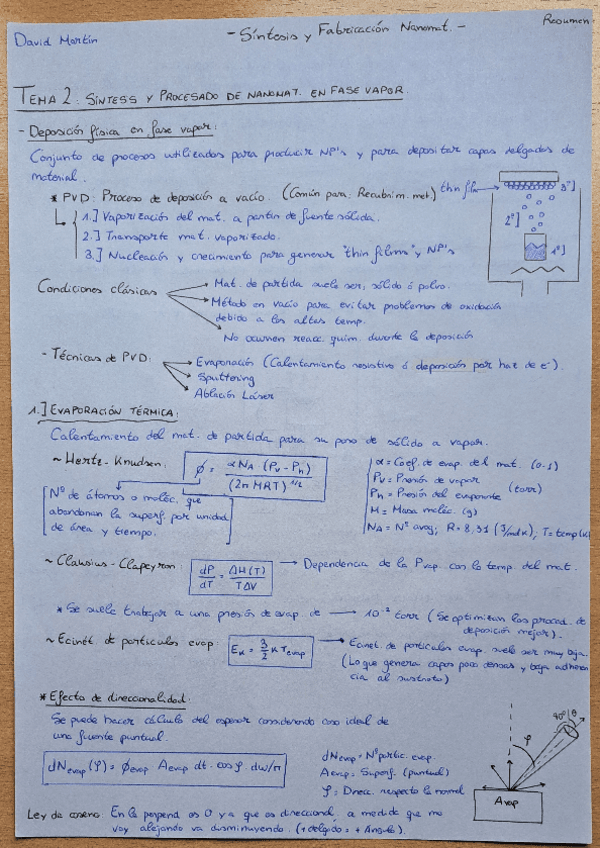 David Martin
- Síntesis y Fabricación Nanomat. -
Resumen
TEMA 2: SÍNTESIS Y PROCESADO DE NANOMAT. EN FASE VAPOR.
- Deposición física en fase vapor:
Conjunto de procesos utilizados para producir NP's y para depositar capas delgadas de
material.
* PVD: Proceso de deposición a vacío. (Común para: Recubrim. met.)
thin film
3º]
2º]
1º]
1.] Vaporización del mat. a partir de fuente sólida.
2.] Transporte mat. vaporizado.
3.] Nucleación y crecimiento para generar "thin films" y NP's
Condiciones clásicas
Mat. de partida suele ser, sólido ó polvo.
Método en vacío para evitar problemas de oxidación
debido a las altas temp.
No ocurren reacc. quím. durante la deposición
- Técnicas de PVD:
Evaporación (Calentamiento resistivo ó deposición por haz de e⁻).
Sputtering
Ablación Láser
1.] EVAPORACIÓN TÉRMICA:
Calentamiento del mat. de partida para su paso de sólido a vapor.
~ Hertz-Knudsen:
ϕ = α NA (Pv - Ph) / (2π MRT)^1/2
Nº de átomos o moléc. que
abandonan la superf. por unidad
de área y tiempo.
α = Coef. de evap. del mat. (0-1)
Pv = Presión de vapor
Ph = Presión del evaporante
(torr)
M = Masa moléc. (g)
NA = Nº avog; R = 8,31 (J/molK); T = temp(K)
~ Clausius-Clapeyron:
dP/dT = ΔH(T)/TΔV
Dependencia de la Pvap. con la temp. del mat.
* Se suele trabajar a una presión de evap. de → 10⁻² torr (Se optimizan los procad. de
deposición mejor).
~ Ecinét. de partículas evap:
Ek = 3/2 K Tevap
Ecinét. de partículas evap. suele ser muy baja.
(Lo que genera capas poco densas y baja adheren
cia al sustrato)
* Efecto de direccionalidad:
Se puede hacer cálculo del espesor considerando caso ideal de
una fuente puntual.
dNevap(φ) = ϕevap Aevap dt. cos φ. dω/π
dNevap = Nºpartic. evap.
Aevap: Superf. (puntual)
φ: Direcc. respecto la normal
φ
Avap
Ley de coseno: En la perpend. es 0 ya que es direccional, a medida que me
voy alejando va disminuyendo. (+ delgido = + Angulo).